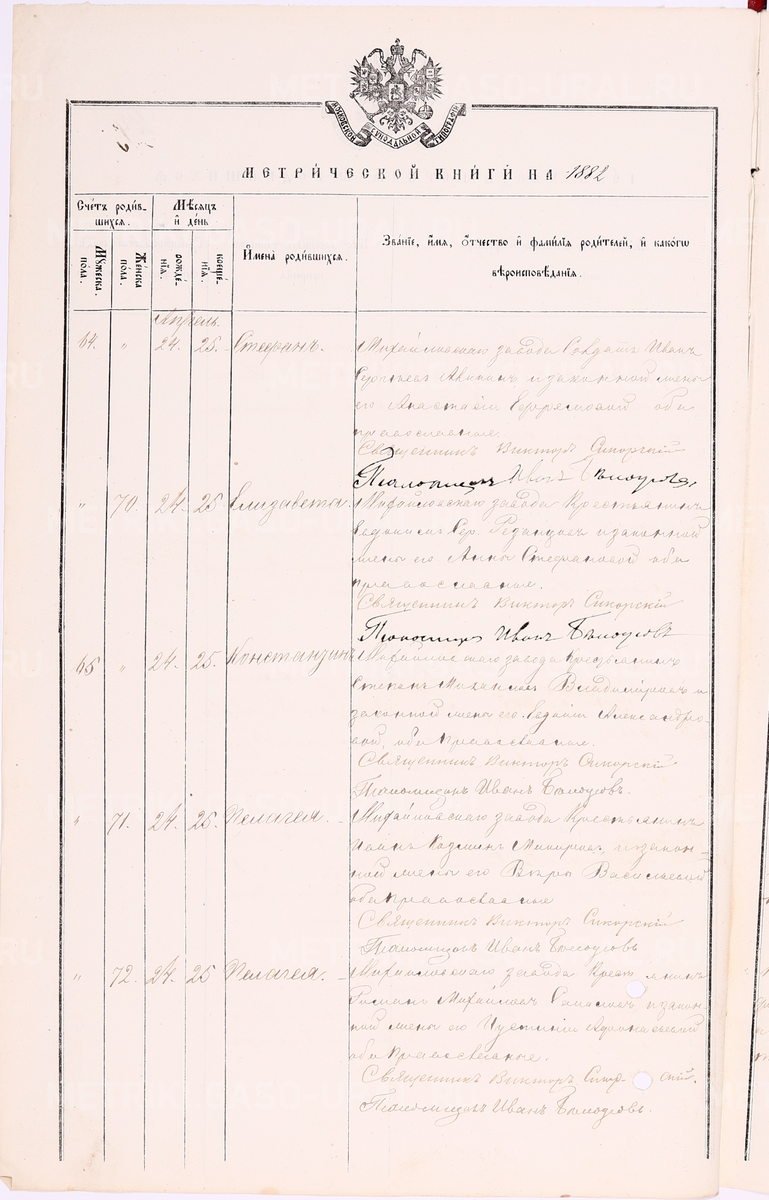 МОСКОВСКОЙ СѴНОДАЛЬНОЙ ТИПОГРАФІИ
МЕТРИ́ЧЕСКОЙ КНИ́ГИ НА 1882
Сче́тъ роди́в-
шихся.
Му́жеска по́ла.
Же́нска по́ла.
Мѣ́сяцъ
и́ де́нь
рожде́нїѧ.
креще́нїѧ.
И҆мена̀ роди́вшихся.
Зва́нїе, и҆́мѧ, ѻ҆́тчество и҆ фами́лїѧ роди́телей, и҆ како́гѡ
вѣроисповѣ́данїѧ.
Апрѣль.
64. " 24. 25. Стефанъ. Михайловскаго завода Солдатъ Иванъ
Сергѣевъ и законной жены
его Анастасіи Ефремовой оба
православные.
Священникъ Викторъ Сикорскій
Псаломщикъ Иванъ
" 70. 24. 25 Елизавета. Михайловскаго завода Крестьянинъ
и законной
жены его Анны Стефановой оба
православные.
Священникъ Викторъ Сикорскій
Псаломщикъ Иванъ Бѣлоусовъ
65 " 24. 25. Константинъ Михайловскаго завода Крестьянинъ
Степанъ Михайловъ и
законной жены его Александро-
вой, оба православные.
Священникъ Викторъ Сикорскій
Псаломщикъ Иванъ Бѣлоусовъ.
" 71. 24. 25. Пелагея. Михайловскаго завода Крестьянинъ
Иванъ Козминъ и закон-
ной жены его Вѣры Васильевой
оба православные
Священникъ Викторъ Сикорскій
Псаломщикъ Иванъ Бѣлоусовъ
" 72. 24. 25 Пелагея. Михайловскаго завода Крест янинъ
Романъ Михайловъ и закон-
ной жены его Іустиніи
оба Православные.
Священникъ Викторъ Сикор ский.
Псаломщикъ Иванъ Бѣлоусовъ.